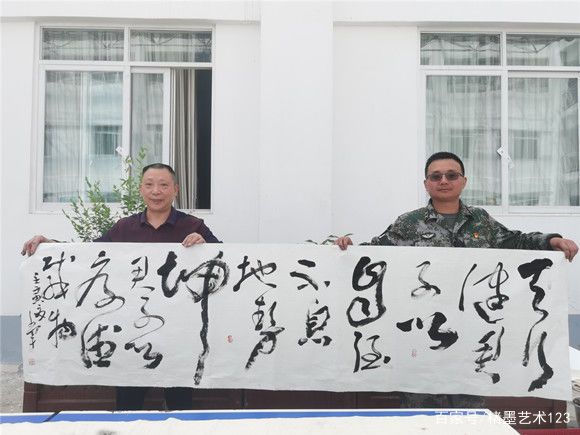 天行
健君
子以
自强
不息
地势
坤
君子以
厚德
载物
壬寅
百家号/墨艺术123